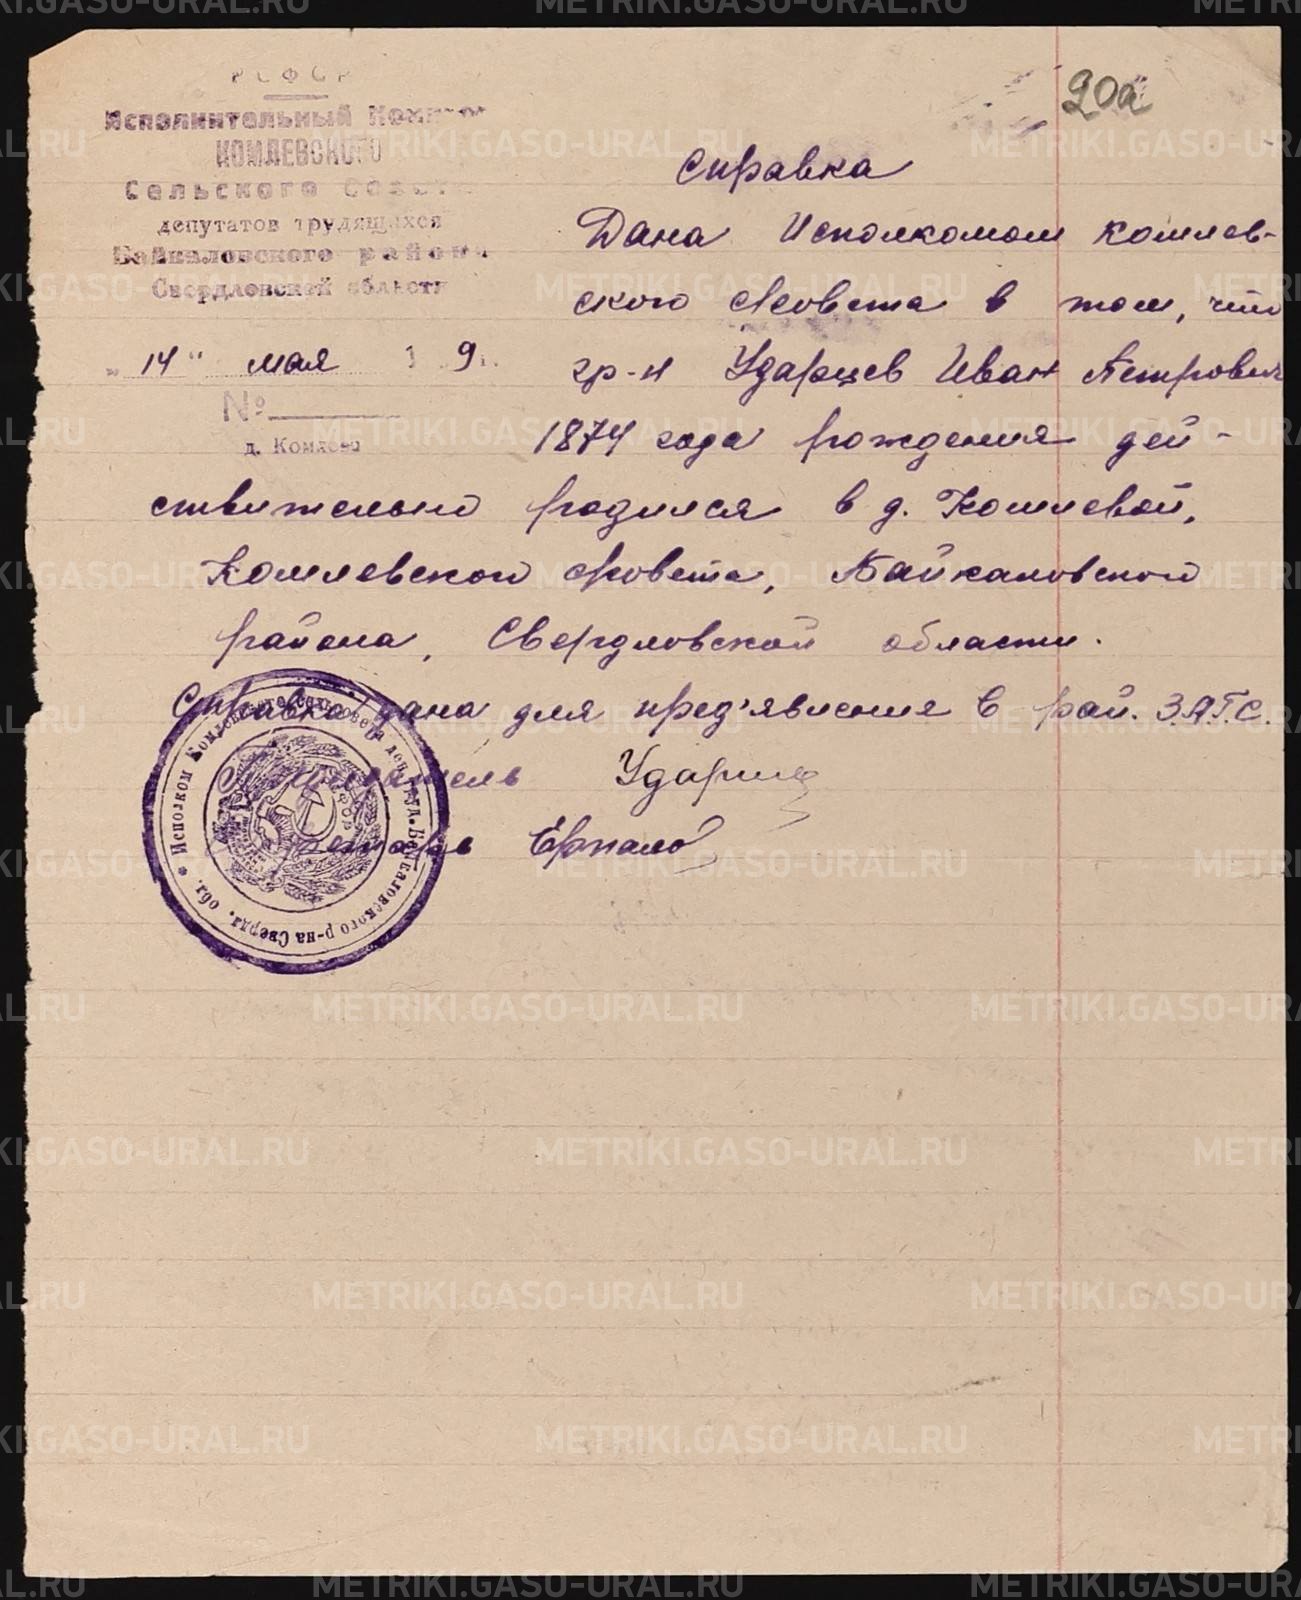 20а
РСФСР
Исполнительный Комитет
КОМЛЕВСКОГО
Сельского Совета
депутатов трудящихся
Байкаловского района
Свердловской области
„14" мая 1 9 г.
№
д. Комлева
Справка
Дана Исполкомом комлев-
ского с/совета в том, что
гр-н Ударцев Иван Петрович
1874 года рождения дей-
ствительно родился в д. Комлевой,
Комлевского с/совета, Байкаловского
района, Свердловской области.
Справка дана для пред'явления в рай. З.А.Г.С.
Председатель
Секретарь
Исполком Комлевского сельсовета деп. труд. Байкаловского р-на Сверд. обл.
РСФСР
METRIKI.GASO-URAL.RU